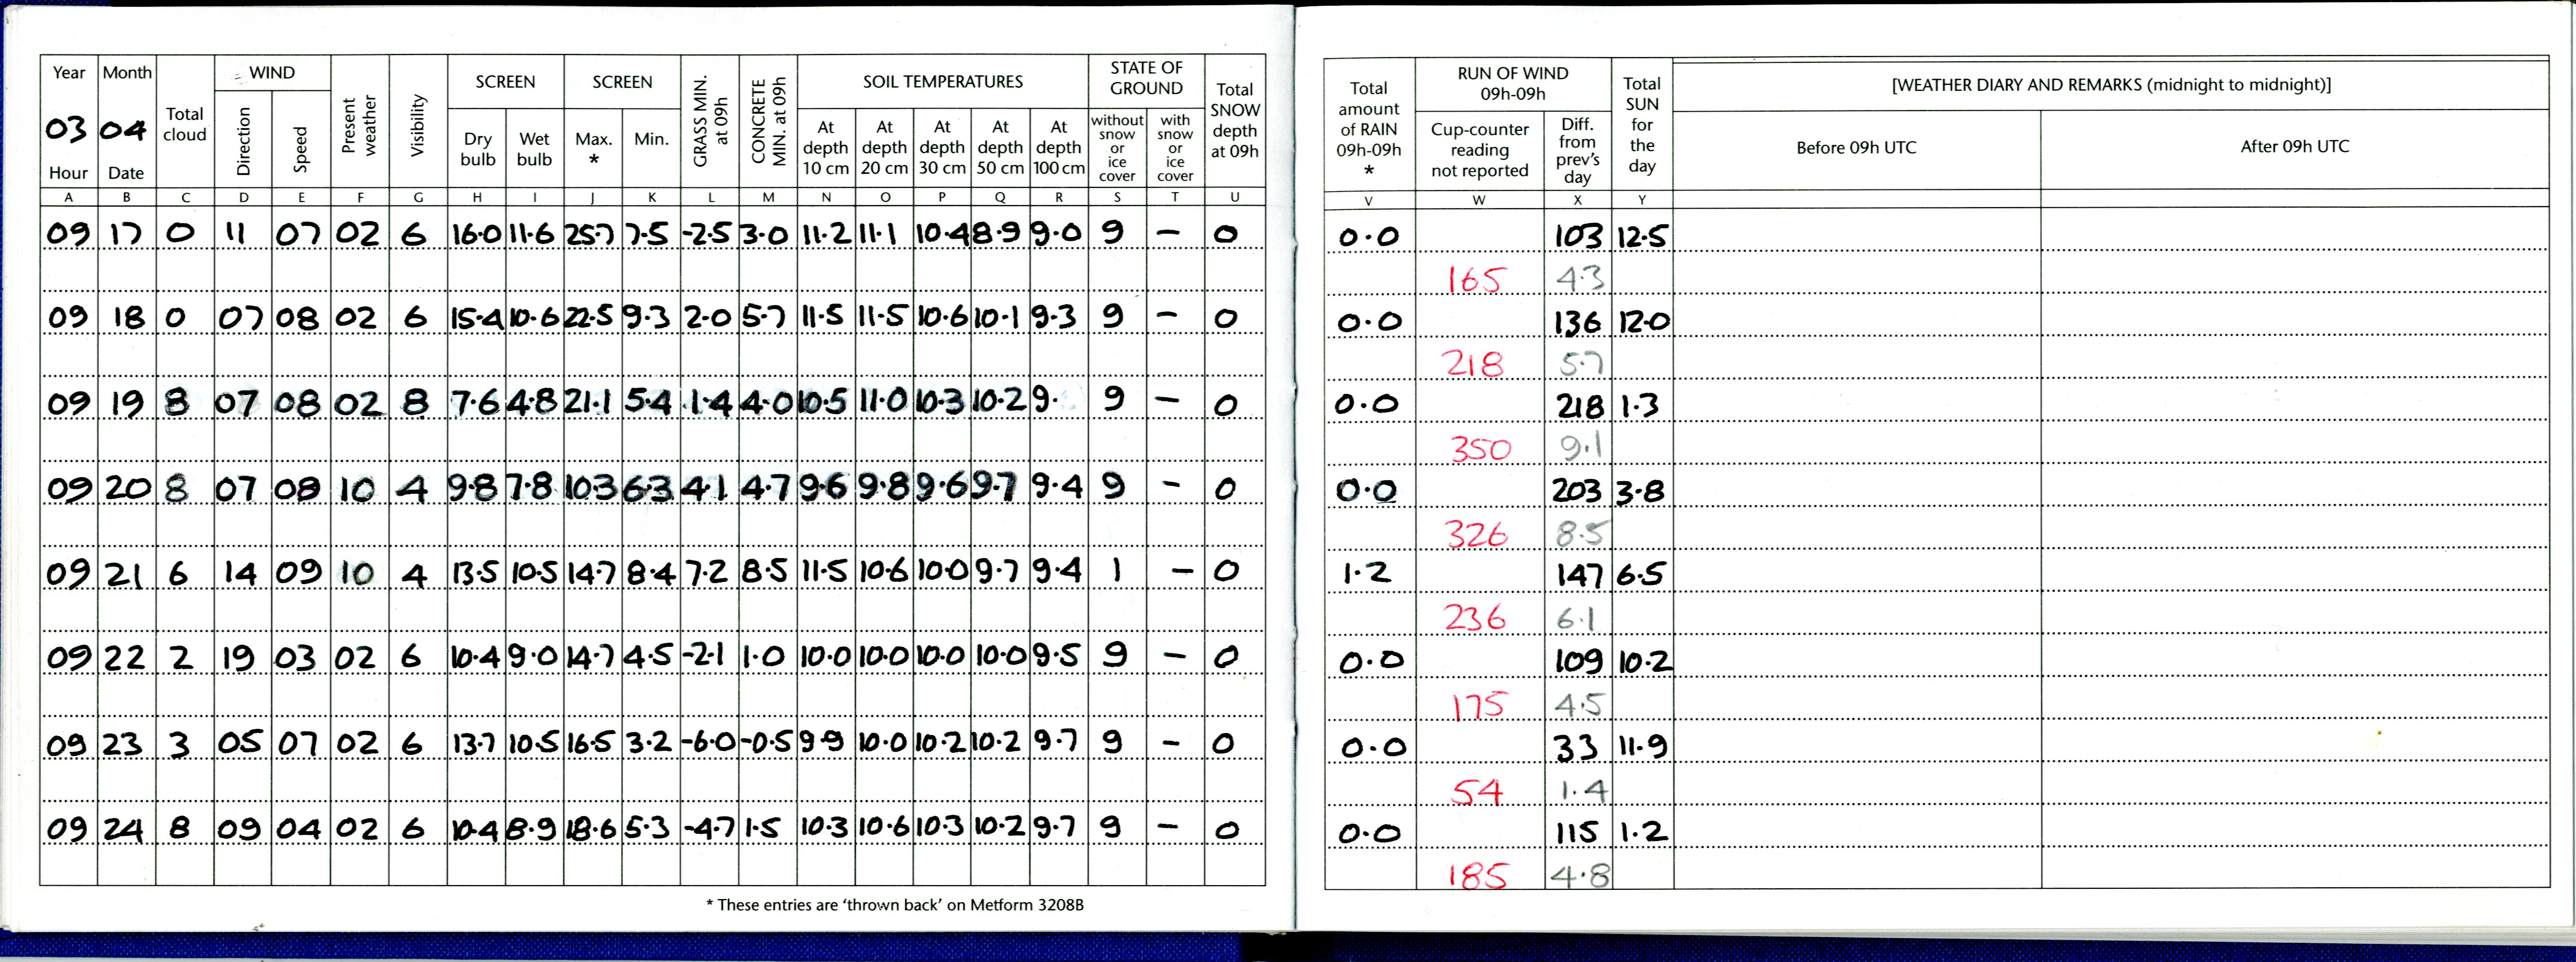 Year Month Total cloud WIND Present weather Visibility SCREEN SCREEN GRASS MIN. at 09h CONCRETE MIN. at 09h SOIL TEMPERATURES STATE OF GROUND Total SNOW depth at 09h
03 04 Direction Speed Dry bulb Wet bulb Max. * Min. At depth 10 cm At depth 20 cm At depth 30 cm At depth 50 cm At depth 100 cm without snow or ice cover with snow or ice cover
Hour Date
A B C D E F G H I J K L M N O P Q R S T U
09 17 0 11 07 02 6 16.0 11.6 25.7 7.5 -2.5 3.0 11.2 11.1 10.4 8.9 9.0 9 – 0
09 18 0 07 08 02 6 15.4 10.6 22.5 9.3 2.0 5.7 11.5 11.5 10.6 10.1 9.3 9 – 0
09 19 8 07 08 02 8 7.6 4.8 21.1 5.4 1.4 4.0 10.5 11.0 10.3 10.2 9. 9 – 0
09 20 8 07 08 10 4 9.8 7.8 10.3 6.3 4.1 4.7 9.6 9.8 9.6 9.7 9.4 9 – 0
09 21 6 14 09 10 4 13.5 10.5 14.7 8.4 7.2 8.5 11.5 10.6 10.0 9.7 9.4 1 – 0
09 22 2 19 03 02 6 10.4 9.0 14.7 4.5 -2.1 1.0 10.0 10.0 10.0 10.0 9.5 9 – 0
09 23 3 05 07 02 6 13.7 10.5 16.5 3.2 -6.0 -0.5 9.9 10.0 10.2 10.2 9.7 9 – 0
09 24 8 09 04 02 6 10.4 8.9 18.6 5.3 -4.7 1.5 10.3 10.6 10.3 10.2 9.7 9 – 0
* These entries are ‘thrown back’ on Metform 3208B
Total amount of RAIN 09h-09h * RUN OF WIND 09h-09h Total SUN for the day [WEATHER DIARY AND REMARKS (midnight to midnight)]
Cup-counter reading not reported Diff. from prev's day Before 09h UTC After 09h UTC
V W X Y
0.0 103 12.5
165 4.3
0.0 136 12.0
218 5.7
0.0 218 1.3
350 9.1
0.0 203 3.8
326 8.5
1.2 147 6.5
236 6.1
0.0 109 10.2
175 4.5
0.0 33 11.9
54 1.4
0.0 115 1.2
185 4.8